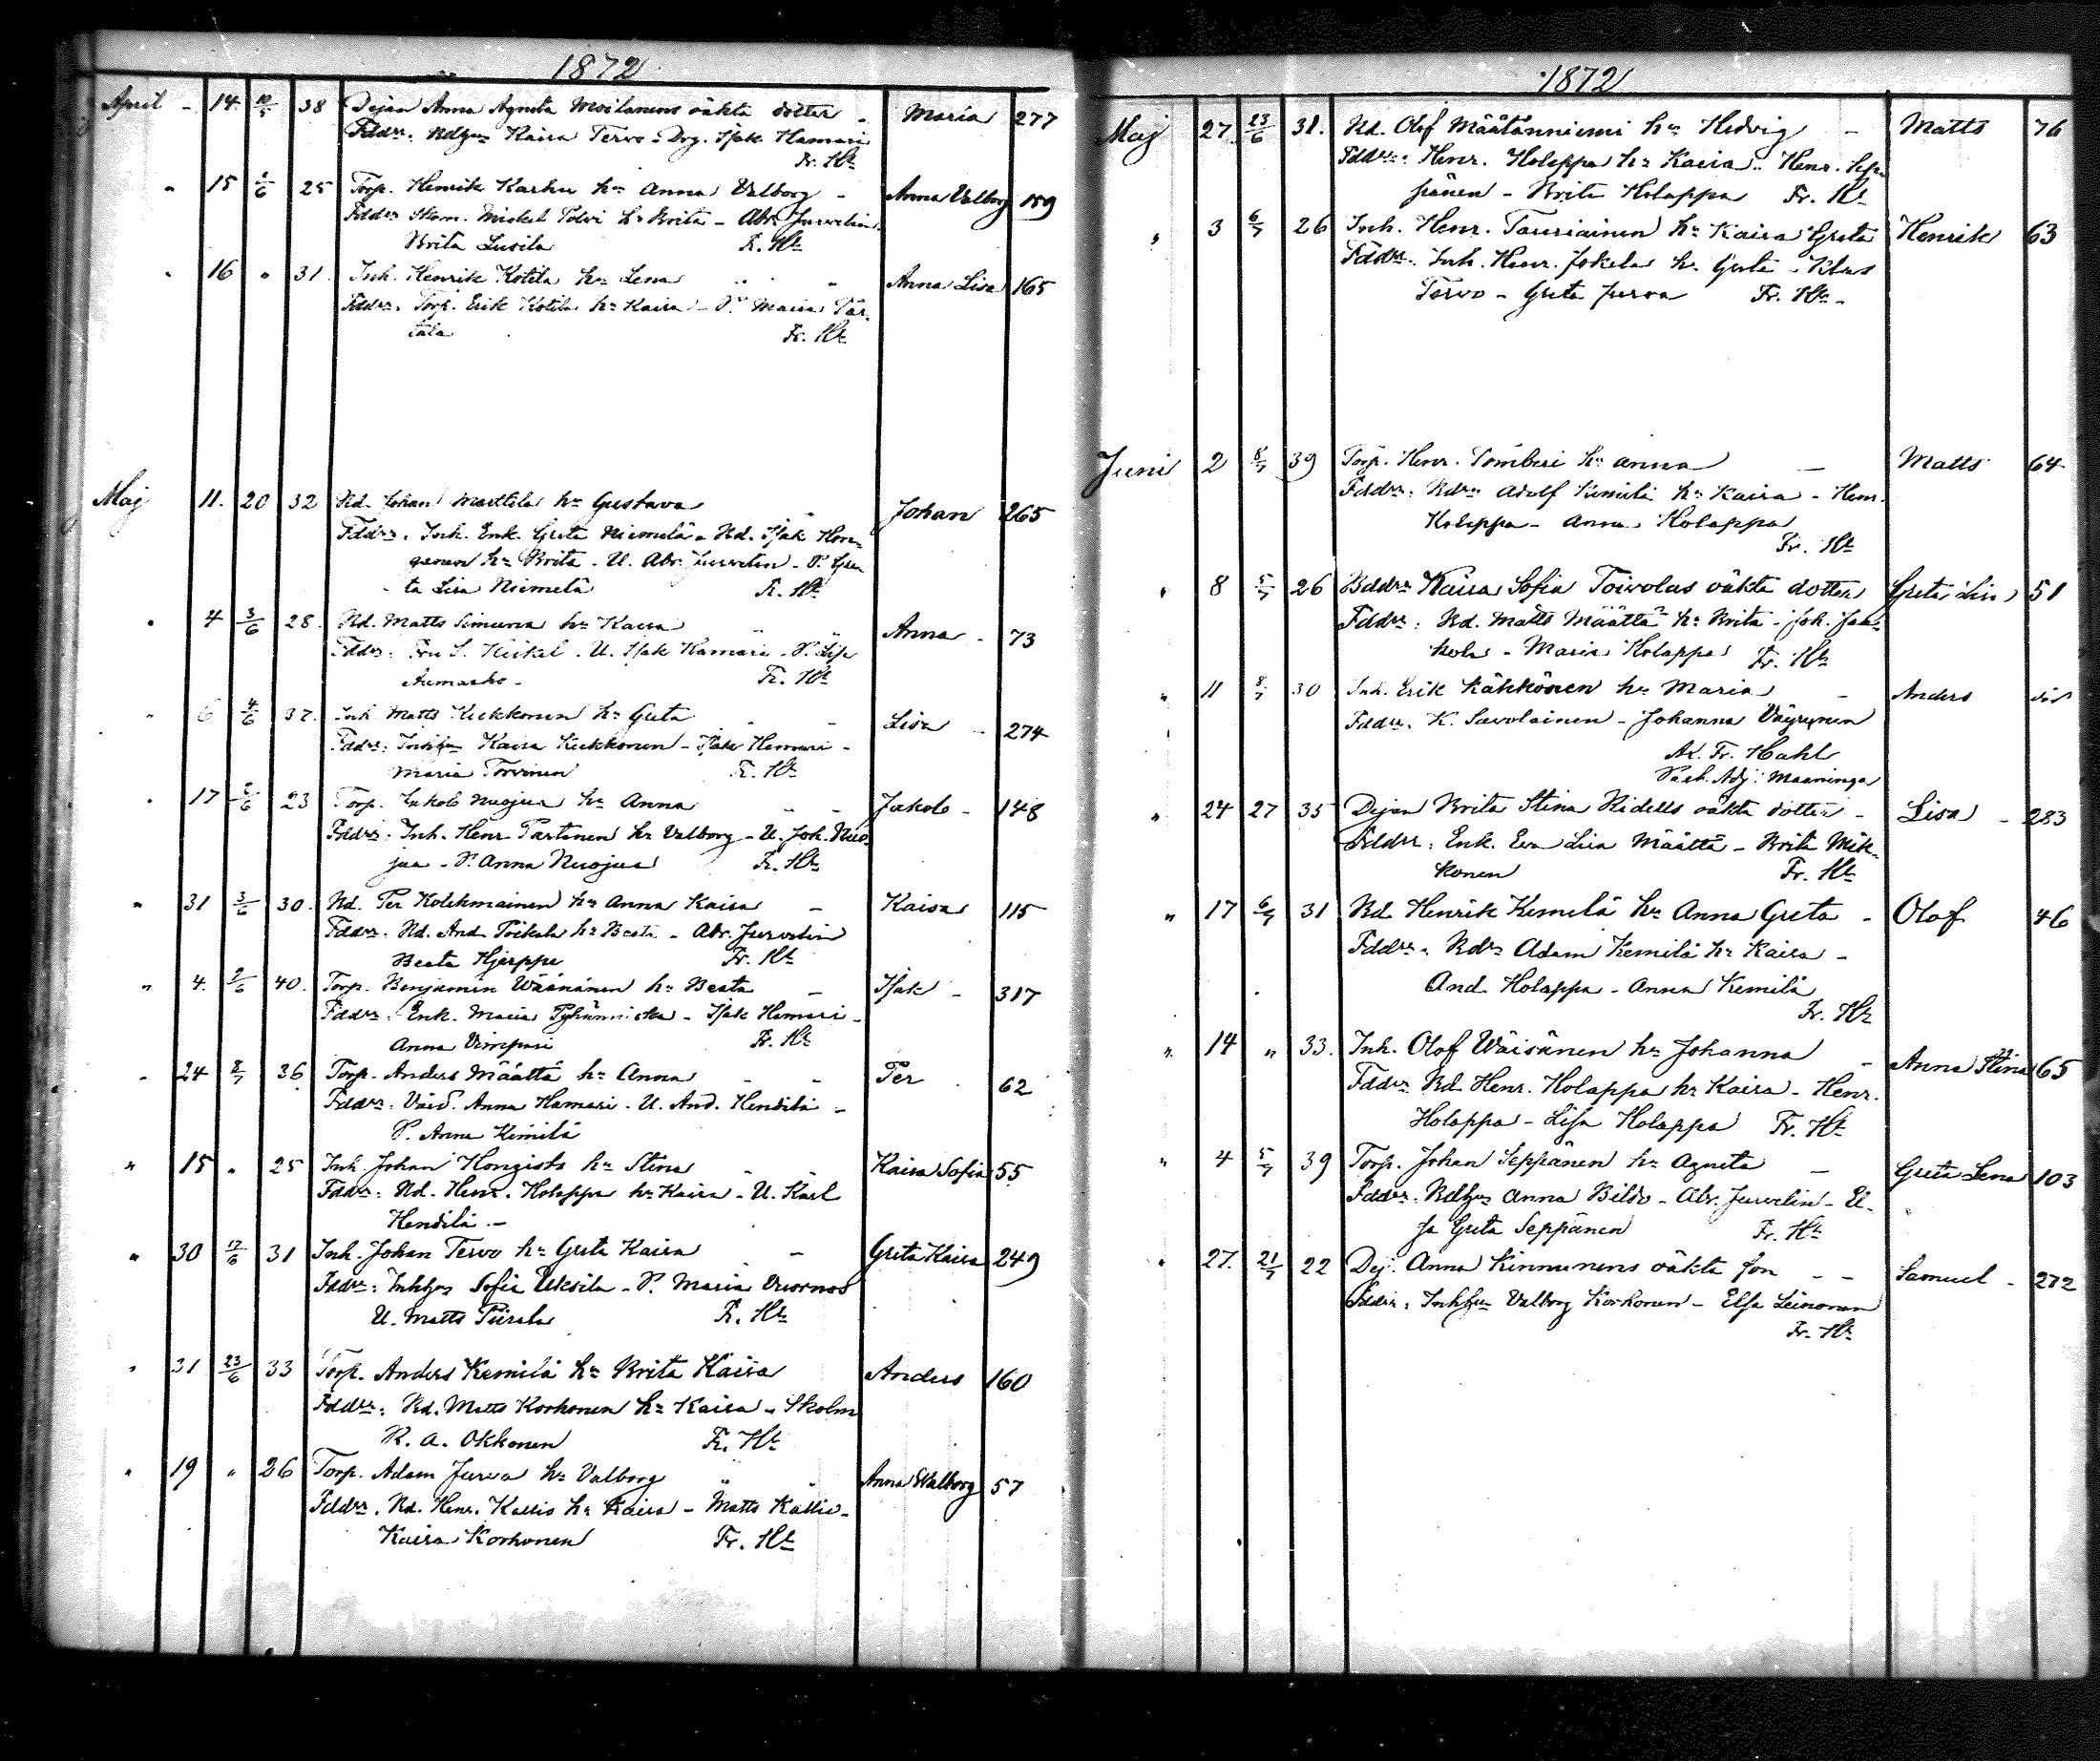 1872
April - 14. 10/5 38 Dejan Anna Agneta Moilanens oäkta dotter - Maria 277
Fddrr. Ndhju Kaisa Tervo - Drg. Isak Hamari
Fr. Hl
" 15 1/6 25 Torp. Henrik Karhu h:u Anna Valborg - Anna Valborg 159
Fddrr Skom. Mickel Polvi h: Brita - Abr. Juvelin
Brita Lusila Fr. Hl
" 16 " 31. Inh. Henrik Kotila h:u Lena " " Anna Lisa 165
Fddrr. Torp. Erik Kotila h: Kaisa - P. Maria Pär-
tala Fr. Hl
Maj 11. 20 32 Nd. Johan Marttila h:u Gustava " Johan 265
Fddrr. Inh. Enk. Greta Niemelä - Nd. Isak Hon-
ganen h:u Brita - U. Abr. Juvelin - P. Gre-
ta Lisa Niemelä Fr. Hl
" 4 3/6 28. Nd. Matts Simuna h:u Kaisa " Anna - 73
Fddrr. Fru S. Heikel - U. Isak Hamari - P.
Aumasko - Fr. Hl
" 6 4/6 37. Inh Matts Keckkonen h: Greta " " Lisa - 274
Fddrr: Inhju Kaisa Keckkonen - Isak Hamari -
Maria Torvinen Fr. Hl
" 17 5/6 23 Torp. Jakob Nuojua h: Anna " " Jakob - 148
Fddrr: Inh. Henr Partanen h: Valborg - U. Joh. Nuo-
jua - P. Anna Nuojua Fr. Hl
" 31 3/6 30. Nd. Per Kolehmainen h:u Anna Kaisa - Kaisa 115
Fddrr. Nd. And. Poikala h: Beata - Abr. Juvelin
Beata Hjerppe Fr. Hl
" 4. 2/6 40. Torp. Benjamin Wäänänen h: Beata - Isak - 317
Fddrr. Enk. Maria Pyhänniska - Isak Hamari -
Anna Vimpari Fr. Hl
" 24 8/7 36 Torp. Anders Määttä h: Anna - - Per 62
Fddrr: Anna Hamari - U. And. Hendilä -
P. Anna Kemilä
" 15 " 25 Inh. Johan Hongisto h: Stina - - Kaisa Sofia 55
Fddrr: Nd. Henr. Holappa h: Kaisa - U. Karl
Hendilä. -
" 30 12/6 31 Inh. Johan Tervo h: Greta Kaisa - Greta Kaisa 249
Fddrr: Inhhju Sofia Uksila - P. Maria Vuornos
U. Matts Piirala Fr. Hl
" 31 23/6 33 Torp. Anders Kemilä h: Brita Kaisa Anders 160
Fddrr: Nd. Matts Korhonen h: Kaisa - Skolm
R. A. Okkonen Fr. Hl
" 19 " 26 Torp. Adam Jurva h: Valborg " " Anna Walborg 57
Fddrr. Nd. Henr. Kallio h: Kaisa - Matts Kallio -
Kaisa Korhonen Fr. Hl
1872
Maj 27. 23/6 31. Nd. Olof Määtänniemi h:u Hedvig - Matts 76
Fddrr: Henr. Holappa h: Kaisa - Henr. Sep-
pänen - Brita Holappa Fr. Hl
" 3 6/7 26 Inh. Henr. Tauriainen h: Kaisa Greta Henrik 63
Fddrr. Inh. Henr. Jokela h. Greta - Klas
Tervo - Greta Jurva Fr. Hl -
Juni 2 8/7 39 Torp. Henr. Tomberi h: Anna - Matts 64
Fddrr: Ndrr Adolf Kemilä h: Kaisa - Henr.
Holappa - Anna Holappa
Fr. Hl
" 8 5/7 26 Bddrr Kaisa Sofia Toivolas oäkta dotter Greta Lisa 51
Fddrr: Nd. Matts Määttä h: Brita - Joh. Jaa-
kola - Maria Holappa Fr. Hl
" 11 8/7 30 Inh. Erik Kähkönen h: Maria - Anders
Fddrr. K. Savolainen - Johanna Väyrynen
Ak. Fr. Hahl
Past. Adj: Maaninga
" 24 27 35 Dejan Brita Stina Kidells oäkta dotter - Lisa - 283
Fddrr: Enk. Eva Lisa Määttä - Brita Mik-
konen Fr. Hl
" 17 6/7 31 Nd Henrik Kemilä h: Anna Greta - Olof 46
Fddrr. Ndr Adam Kemilä h: Kaisa -
And. Holappa - Anna Kemilä
Fr. Hl
" 14 " 33. Inh. Olof Wäisänen h: Johanna - Anna Stina 65
Fddrr Nd Henr. Holappa h: Kaisa - Henr.
Holappa - Lisa Holappa Fr. Hl
" 4 5/7 39 Torp. Johan Seppänen h: Agneta - Greta Lena 103
Fddrr. Ndhju Anna Bildo - Abr. Juvelin - El-
sa Greta Seppänen Fr. Hl
" 27. 21/7 22 Dej. Anna Kinnunens oäkta son - - Samuel - 272
Fddrr: Inhhju Valborg Korhonen - Elsa Leinonen
Fr. Hl